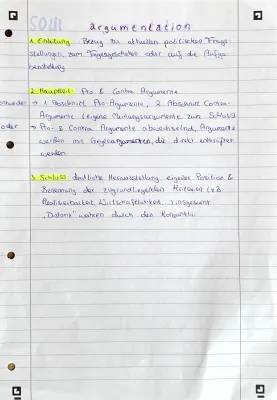 SOWI argumentation
1. Einleitung: Bezug zu aktuellen politischen Frage-
stellungen, zum Tagesgeschehen oder auf die Aufga-
benstellung
2. Hauptteil: Pro & Contra Argumente
entweder → 1. Abschnitt Pro-Argumente, 2. Abschnitt Contra-
Argumente (eigene Meinungsargumente zum Schluss)
oder → Pro- & Contra Argumente abwechselnd, Argumente
werden mit Gegenargumenten, die direkt entkräftet
werden
3. Schluss: deutliche Herausstellung eigener Position &
Benennung der zugrundliegenden Kriterien (z.B.
Realisierbarkeit, Wirtschaftlichkeit...) insgesamt
"Distanz" wahren durch den Konjunktiv